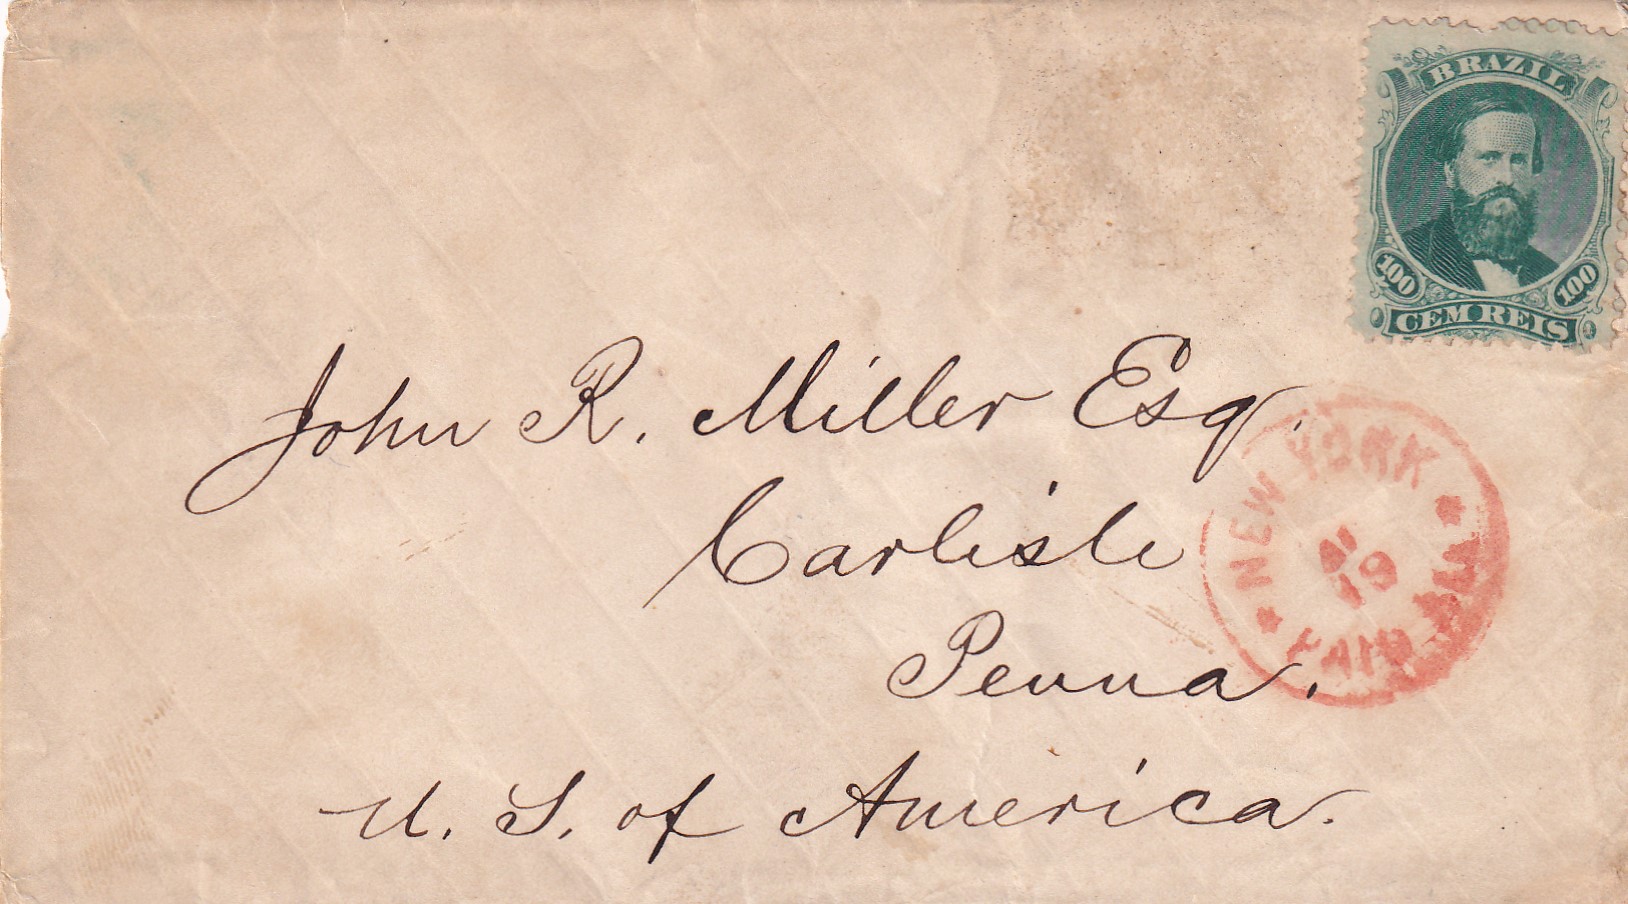 BRAZIL
100 100
CEM REIS
John R. Miller Esq.
Carlisle
Penna.
U. S. of America.
NEW YORK
19
PAID ALL